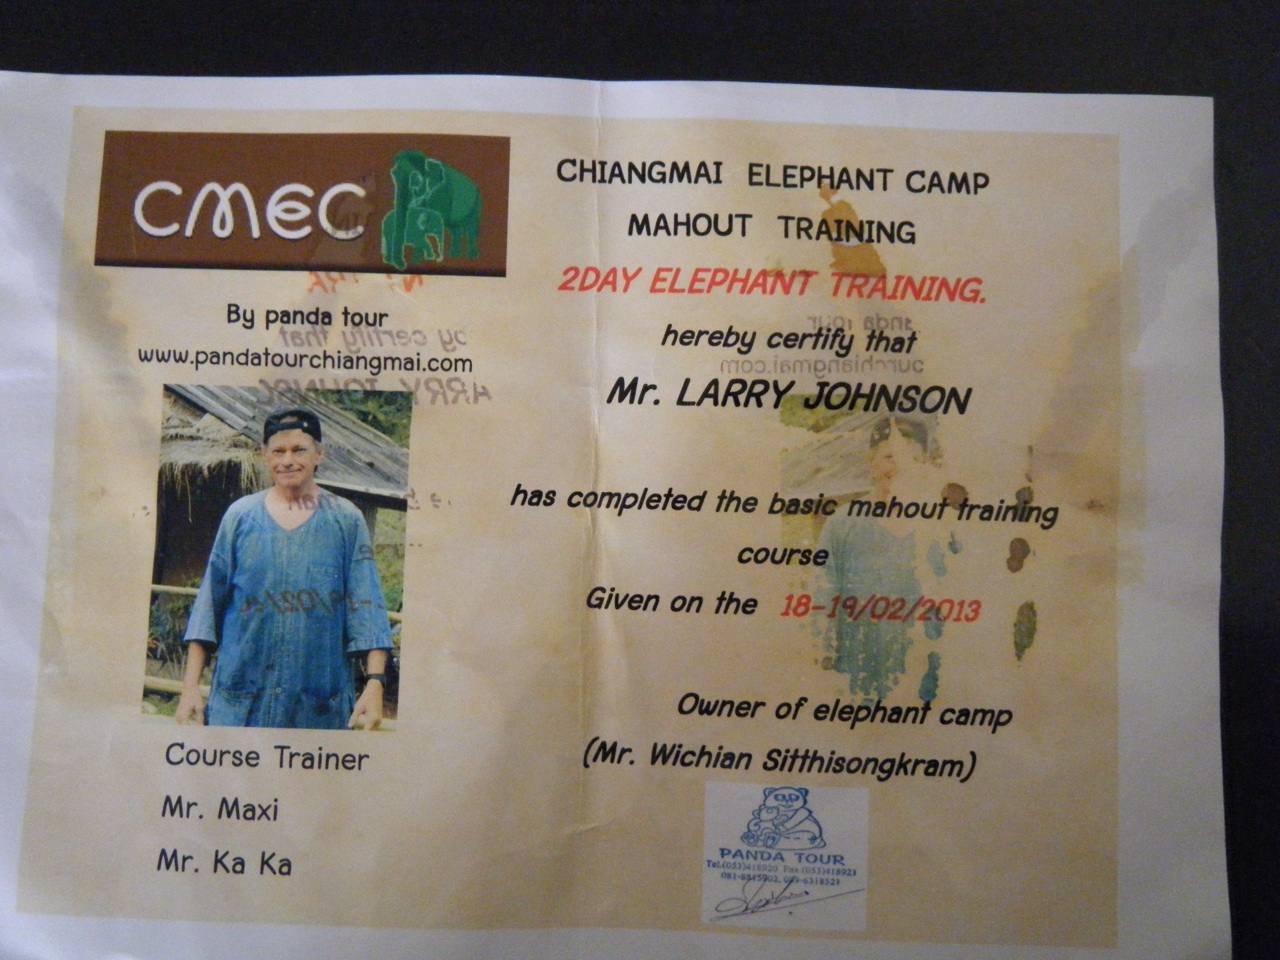 CMEC
By panda tour
www.pandatourchiangmai.com
Course Trainer
Mr. Maxi
Mr. Ka Ka
CHIANGMAI ELEPHANT CAMP
MAHOUT TRAINING
2DAY ELEPHANT TRAINING.
hereby certify that
Mr. LARRY JOHNSON
has completed the basic mahout training
course
Given on the 18-19/02/2013
Owner of elephant camp
(Mr. Wichian Sitthisongkram)
PANDA TOUR
Tel.(053)418920 Fax.(053)418921